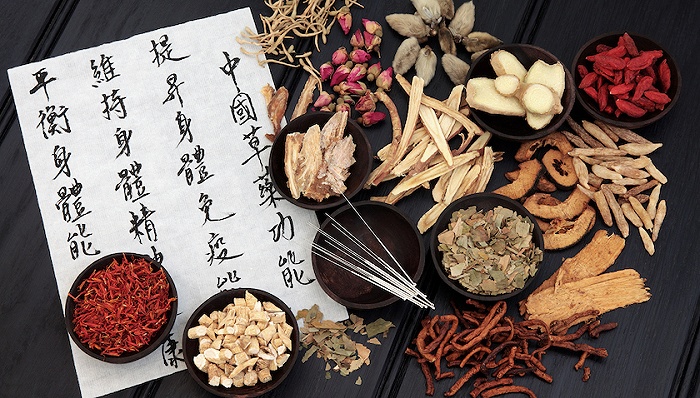 中國草藥功能
提昇身體免疫能
維持身體精神康
平衡身體能